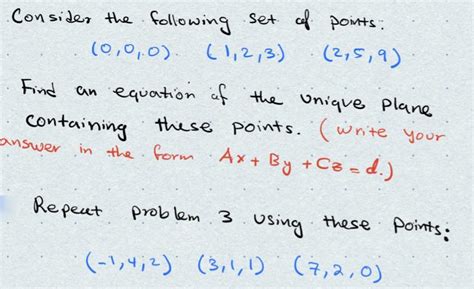 Consider the following set of points:
(0,0,0) (1,2,3) (2,5,9)
Find an equation of the unique plane
containing these points. (write your
answer in the form Ax + By + Cz = d.)
Repeat problem 3 using these points:
(-1,4,2) (3,1,1) (7,2,0)